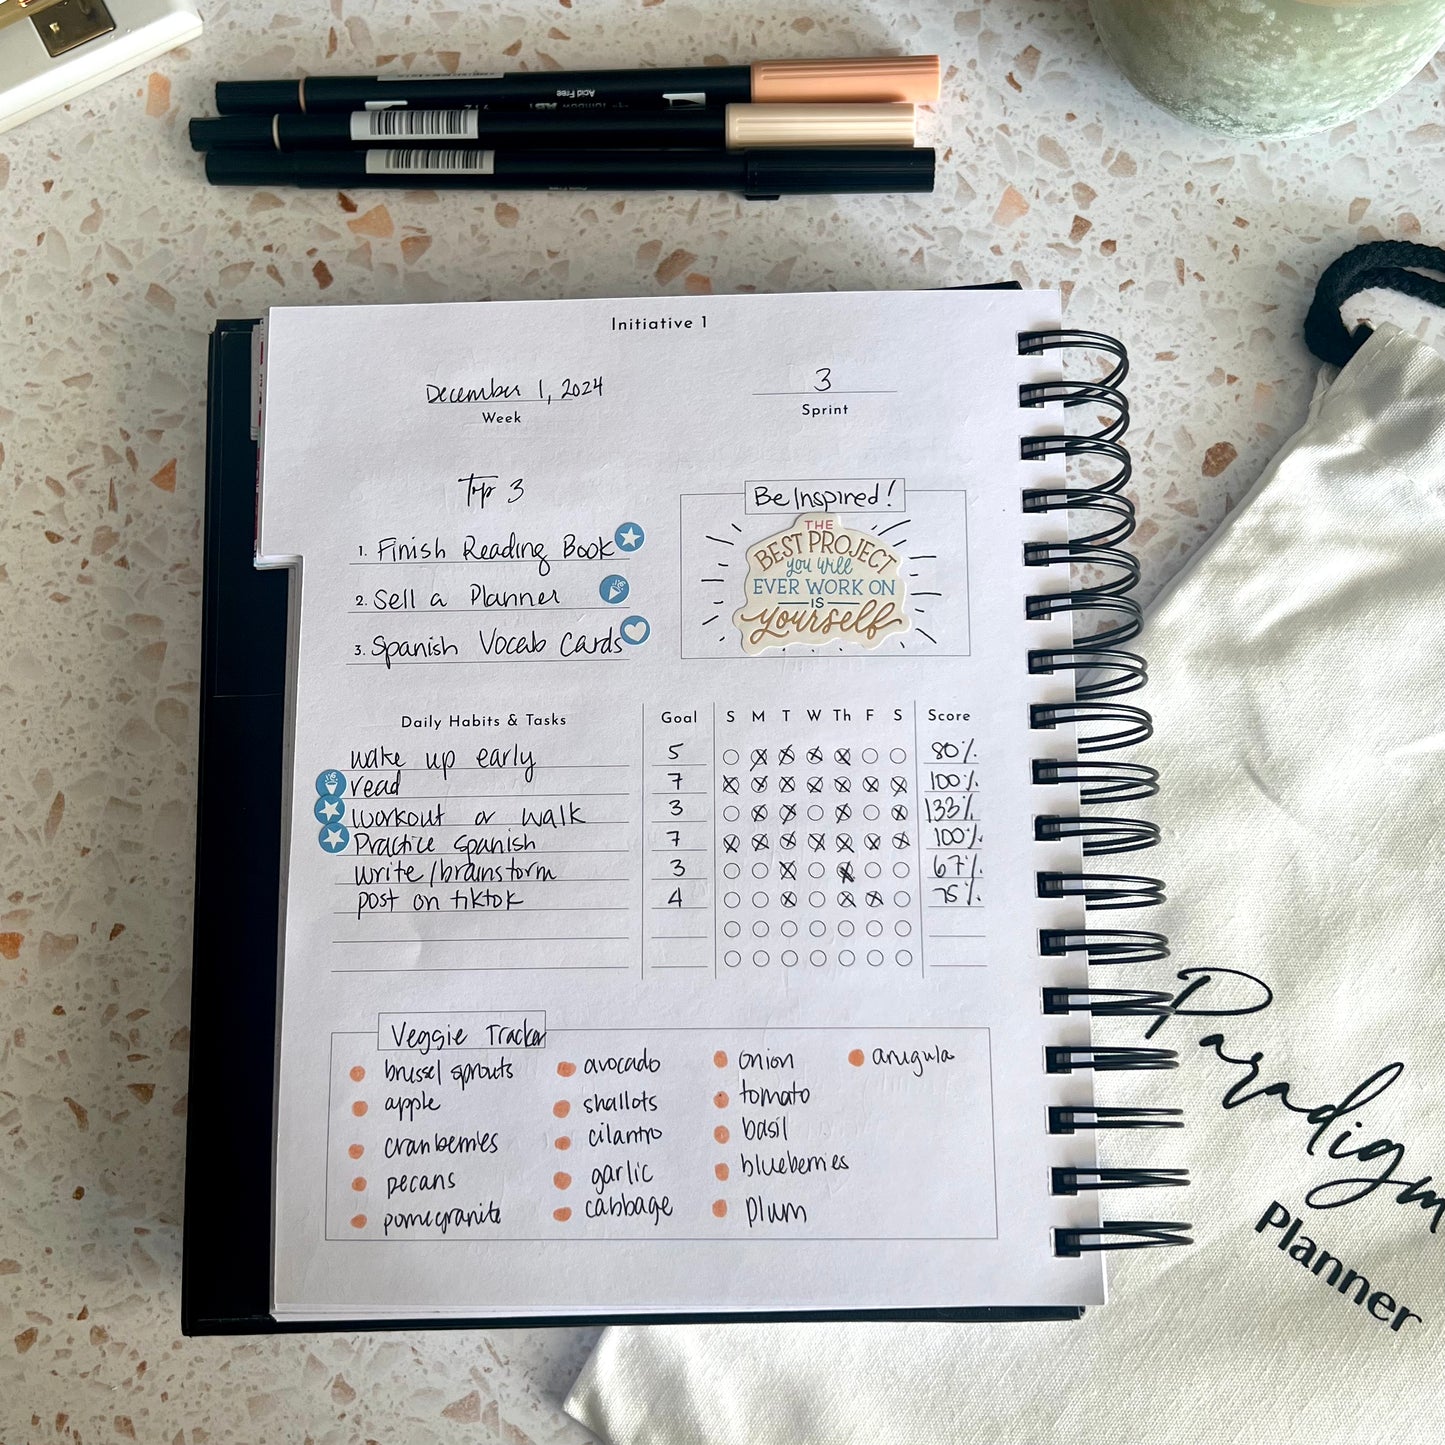 Acid Free
Initiative 1
December 1, 2024
Week
3
Sprint
Top 3
1. Finish Reading Book
2. Sell a Planner
3. Spanish Vocab Cards
Be Inspired!
THE
BEST PROJECT
you will
EVER WORK ON
IS
yourself
Daily Habits & Tasks Goal S M T W Th F S Score
wake up early 5 80%
read 7 100%
workout or walk 3 133%
Practice Spanish 7 100%
write/brainstorm 3 67%
post on tiktok 4 75%
Veggie Tracker
brussel sprouts avocado onion arugula
apple shallots tomato
cranberries cilantro basil
pecans garlic blueberries
pomegranite cabbage plum
Paradigm
Planner